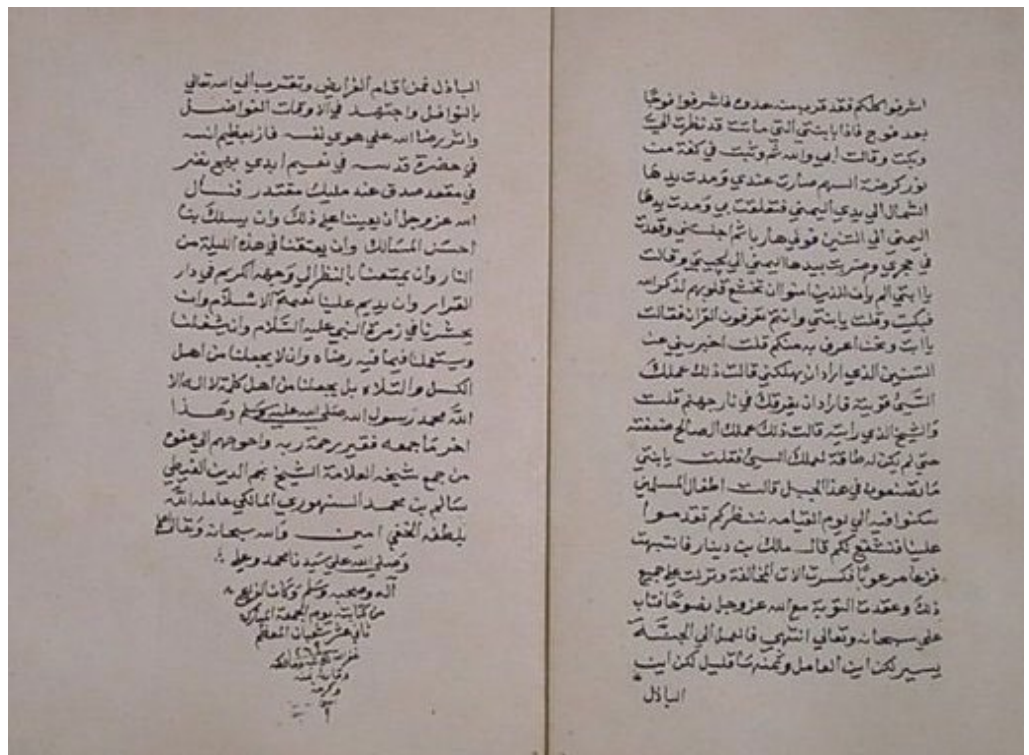 اشرفوا كلكم فقد قرب منه عدوه فاشرفوا فوجا
بعد فوج فاذا بابنتي التي ماتت قد نظرت الي
وبكت وقالت ابي والله ثم وثبت في كفة من
نور كرمية السهم صارت عندي ومدت يدها
الشمال الي يدي اليمني فتعلقت بي ومدت يدها
اليمني الي التنين فولي هاربا ثم اجلستني وقعدت
في حجري وضربت بيدها اليمني الي لحيتي وقالت
يا ابتي الم يأن للذين امنوا ان تخشع قلوبهم لذكر الله
فبكيت وقلت يا بنتي وانتم تعرفون القران فقالت
يا ابت ونحن اعرف به منكم قلت اخبريني عن
التنين الذي اراد ان يهلكني قالت ذلك عملك
السيئ قويته فاراد ان يغرقك في نار جهنم قلت
والشيخ الذي رايته قالت ذلك عملك الصالح ضعفته
حتي لم يكن له طاقة لعملك السيئ فقلت يا بنتي
ما تصنعون في هذا الجبل قالت اطفال المسلمين
سكنوا فيه الي يوم القيامه ننتظركم تقدموا
علينا فنشفع لكم قال مالك بن دينار فانتبهت
فزعا مرعوبا فكسرت الات المخالفة وتركت جميع
ذلك وعقدت التوبة مع الله عز وجل نصوحا فتاب
علي سبحانه وتعالي انتهي فالعمل الي الجنة
يسير لكن اين العامل وثمنها قليل لكن اين
الباذل
الباذل فمن اقام الفرايض وتقرب الي الله تعالي
بالنوافل واجتهد في الاوقات الفواضل
واثر رضا الله علي هوي نفسه فاز بعظيم انسه
في حضرة قدسه في نعيم ابدي بهج نضر
في مقعد صدق عند مليك مقتدر فنسال
الله عز وجل ان يعيننا علي ذلك وان يسلك بنا
احسن المسالك وان يعتقنا في هذه الليلة من
النار وان يمتعنا بالنظر الي وجهه الكريم في دار
القرار وان يديم علينا نعمة الاسلام وان
يحشرنا في زمرة النبي عليه السلام وان يشغلنا
ويستعملنا فيما فيه رضاه وان لا يجعلنا من اهل
الكسل والتلاه بل يجعلنا من اهل كلمة لا اله الا
الله محمد رسول الله صلي الله عليه وسلم وهذا
اخر ما جمعه فقير رحمة ربه واحوجهم الي عفوه
من جمع شيخه العلامة الشيخ نجم الدين الغيطي
سالم بن محمد السنهوري المالكي عامله الله
بلطفه الخفي امين والله سبحانه وتعالي اعلم
وصلي الله علي سيدنا محمد وعلي
اله وصحبه وسلم وكان الفراغ
من كتابته يوم الجمعة المبارك
ثاني عشر شعبان المعظم